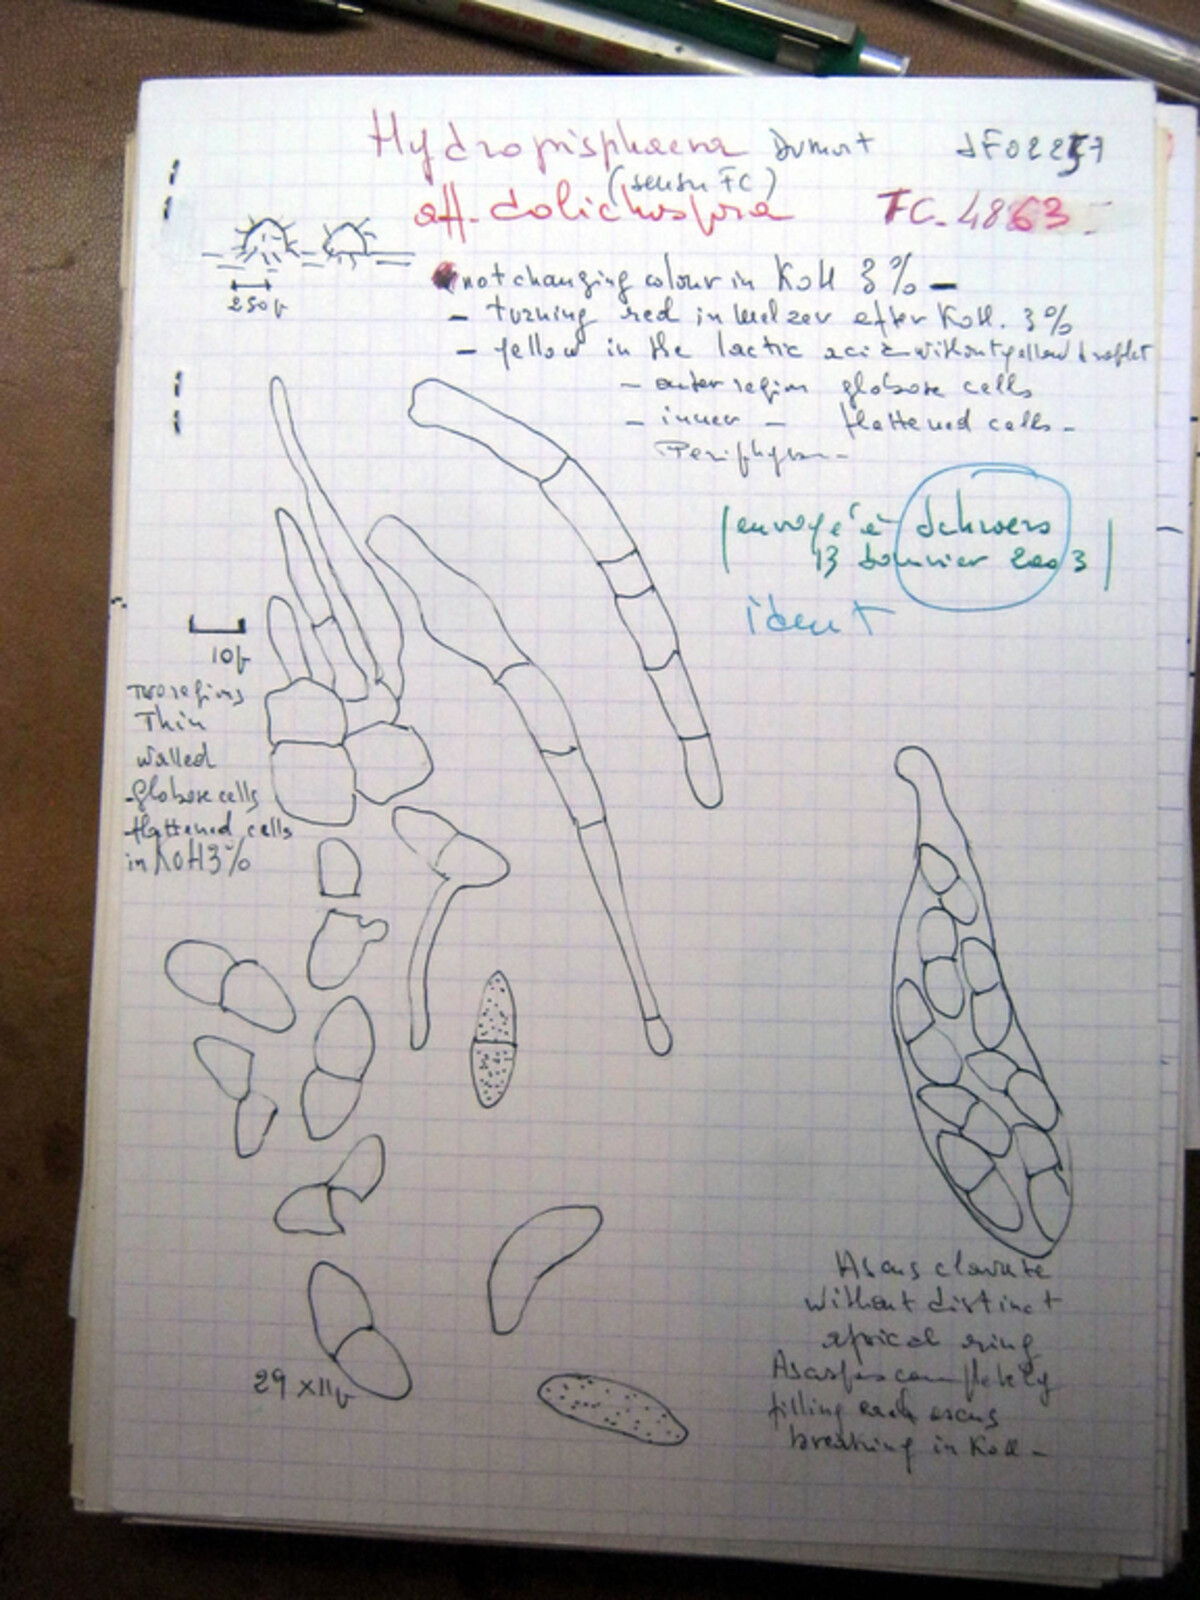 Hydropisphaera Dumort JF02257
(sensu FC)
aff. dolichospora FC. 4863
not changing colour in KOH 3% -
- turning red in Melzer after KOH. 3%
- yellow in the lactic acid without yellow droplet
- outer region globose cells
- inner - flattened cells -
250µ
envoyé à Schroers
13 2003
ident
10µ
Two regions
Thin
walled
- Globose cells
- flattened cells
in KOH 3%
Ascus clavate
without distinct
apical ring
completely
filling each ascus
breaking in KOH -
29 x 11µ